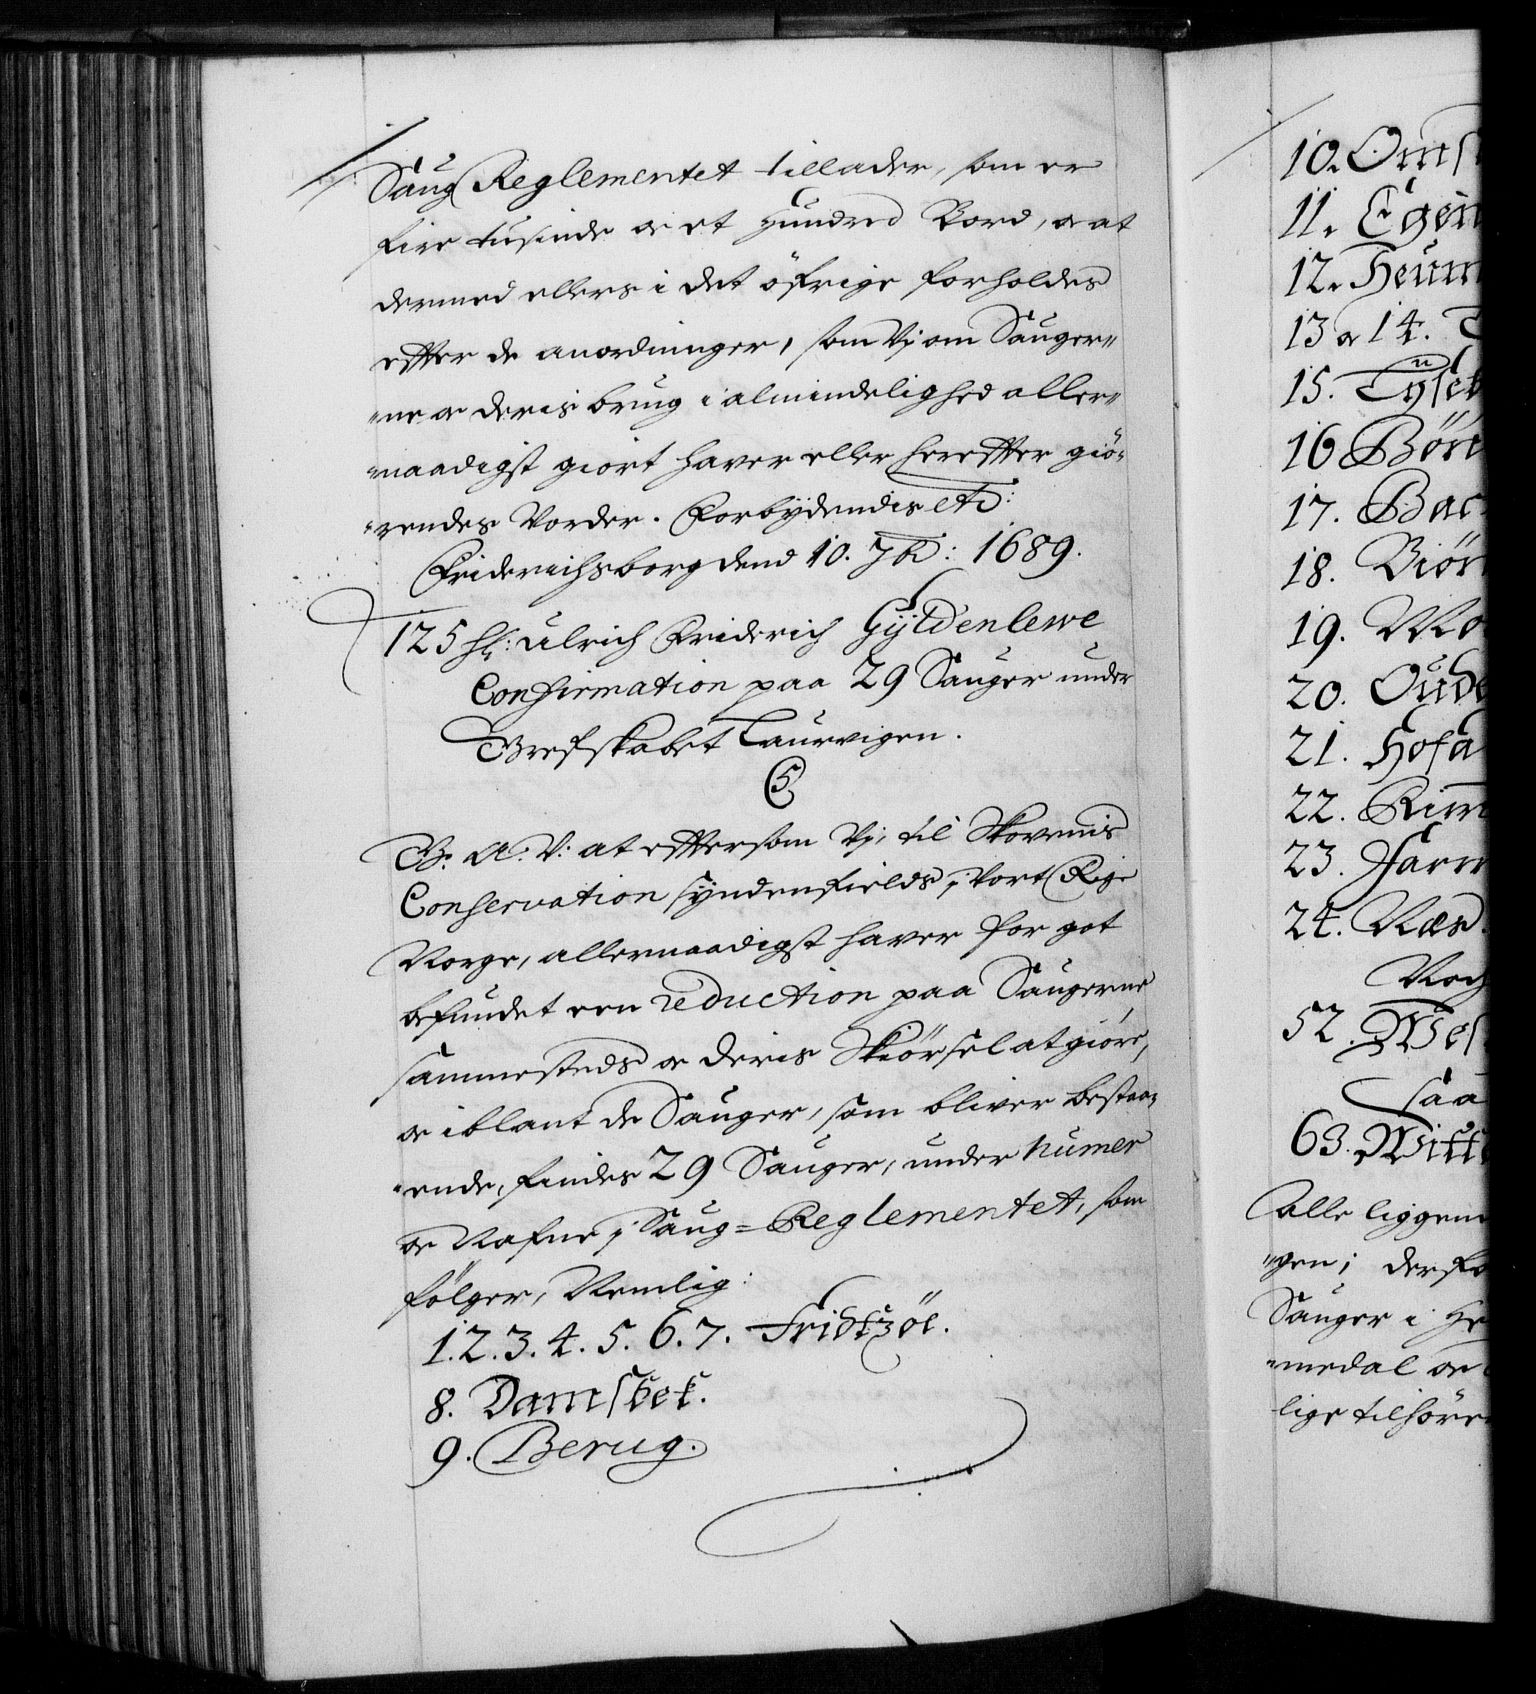 Saug Reglementet tillader, som er
fire tusinde oc et Hundred Bord, oc at
dermed ellers i det öfrige forholdes
efter de anordninger, som Vj om Sauger=
=ne oc deris brug i almindelighed aller=
=naadigst giort haver eller herefter giö=
=rendes Vorder. Forbydendis etc:
Friderichsborg dend 10. 7br: 1689.
125 Hr: Ulrich Friderich Gyldenlewe
Confirmation paa 29 Sauger under
Grefskabet Laurvigen.
C5
G. A: V: at eftersom Vj, til Skovenis
Conservation syndenfields i Vort Rige
Norge, allernaadigst haver for got
befundet een reduction paa Saugerne
sammesteds oc deris Skiörsel at giöre,
oc iblant de Sauger, som bliver bestaa=
=ende, findes 29 Sauger, under Numer
oc Nafne i Saug=Reglementet, som
fölger, Nemlig:
1. 2. 3. 4. 5. 6. 7. Fridtzöe.
8. Damsbek.
9. Berug.
10. Oms
11. Egen
12. Heum
13 oc 14.
15. Tysek
16 Böre
17. Bac
18. Biör
19. Mo
20. Oude
21. Hofa
22. Rim
23. Farr
24. Næs
Noch
52. Wes
saa
63. Witt
alle liggen
=gen; derfo
Sauger i He
=medal oc
lige tilhöre